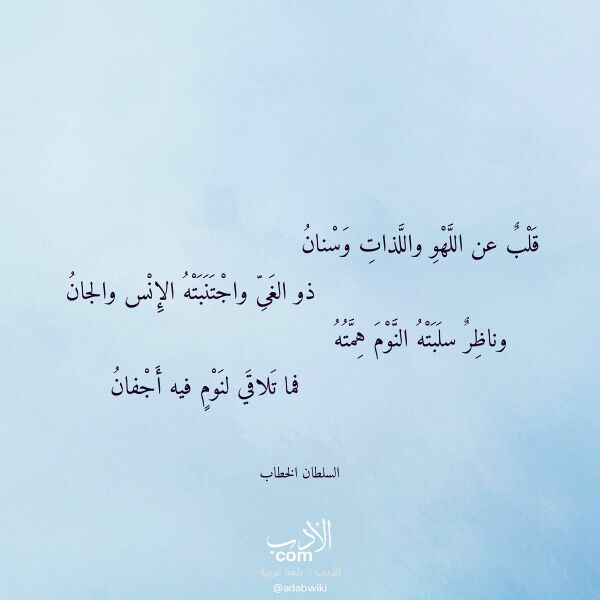 قَلْبٌ عن اللَّهْوِ واللَّذاتِ وَسْنانُ
ذو الغَيِّ واجْتَنَبَتْهُ الإِنْس والجانُ
وناظِرٌ سلَبَتْهُ النَّوْمَ هِمَّتُهُ
فما تَلاقَي لنَوْمٍ فيه أَجْفانُ
السلطان الخطاب
الأدب
com
الأدب .. بلغة عربية
@adabwiki